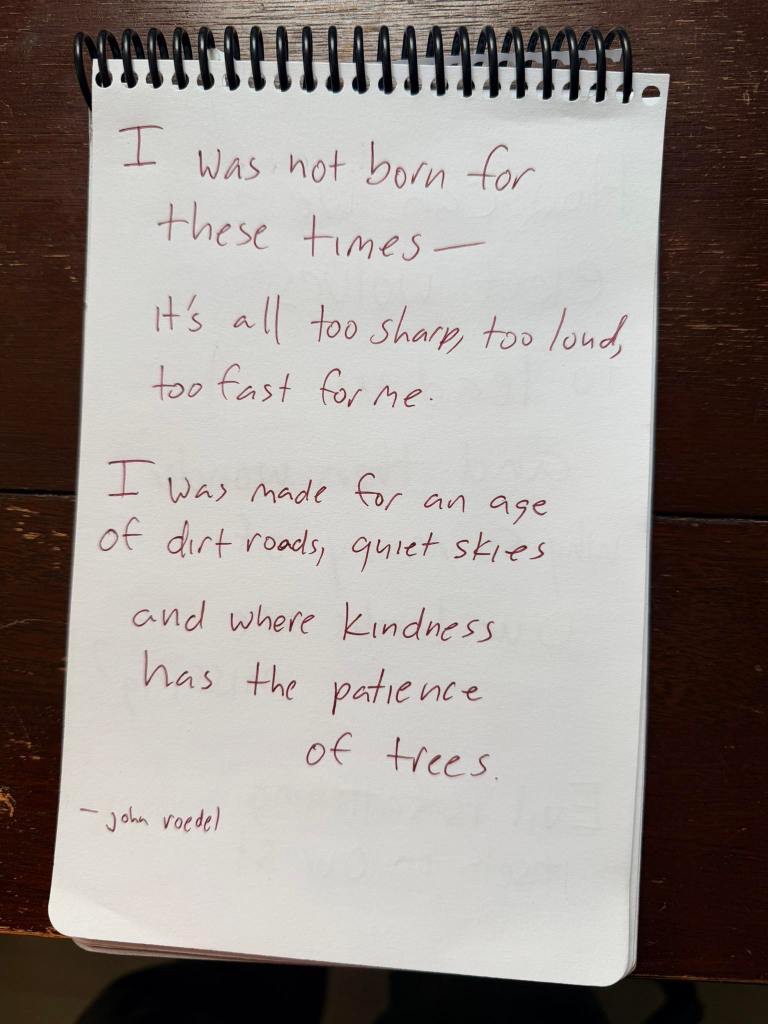 I was not born for
these times—
It's all too sharp, too loud,
too fast for me.
I was made for an age
of dirt roads, quiet skies
and where kindness
has the patience
of trees.
- john roedel